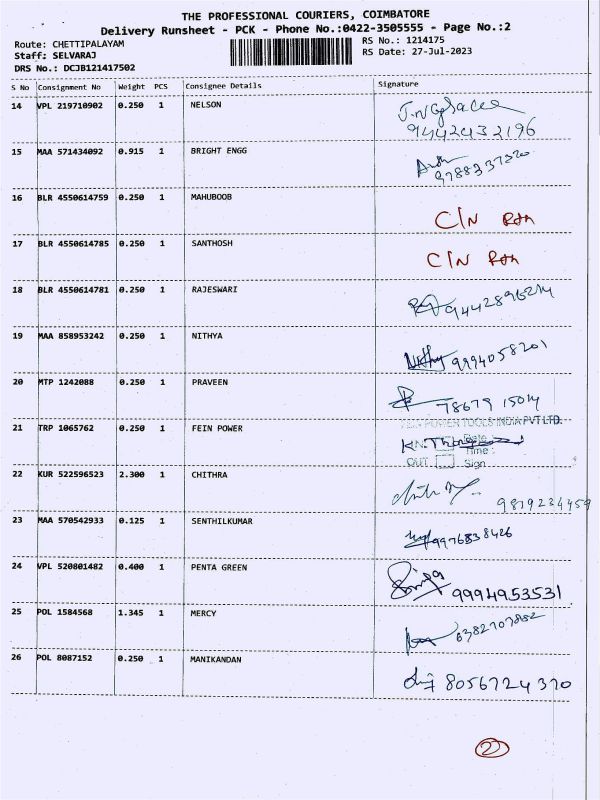 THE PROFESSIONAL COURIERS, COIMBATORE
Delivery Runsheet - PCK - Phone No.:0422-3505555 - Page No.:2
Route: CHETTIPALAYAM RS No.: 1214175
Staff: SELVARAJ RS Date: 27-Jul-2023
DRS No.: DCJB121417502
S No Consignment No Weight PCS Consignee Details Signature
14 VPL 219710902 0.250 1 NELSON
9442432196
15 MAA 571434092 0.915 1 BRIGHT ENGG
9788337320
16 BLR 4550614759 0.250 1 MAHUBOOB
C/N
17 BLR 4550614785 0.250 1 SANTHOSH
C/N
18 BLR 4550614781 0.250 1 RAJESWARI
9442896214
19 MAA 858953242 0.250 1 NITHYA
Nithy 9994058201
20 MTP 1242088 0.250 1 PRAVEEN
78679 15014
21 TRP 1065762 0.250 1 FEIN POWER
POWER TOOLS INDIA PVT LTD.
IN Date
Time :
OUT Sign
22 KUR 522596523 2.300 1 CHITHRA
9819234459
23 MAA 570542933 0.125 1 SENTHILKUMAR
9976838426
24 VPL 520801482 0.400 1 PENTA GREEN
9994953531
25 POL 1584568 1.345 1 MERCY
6382707882
26 POL 8087152 0.250 1 MANIKANDAN
8056724370
2